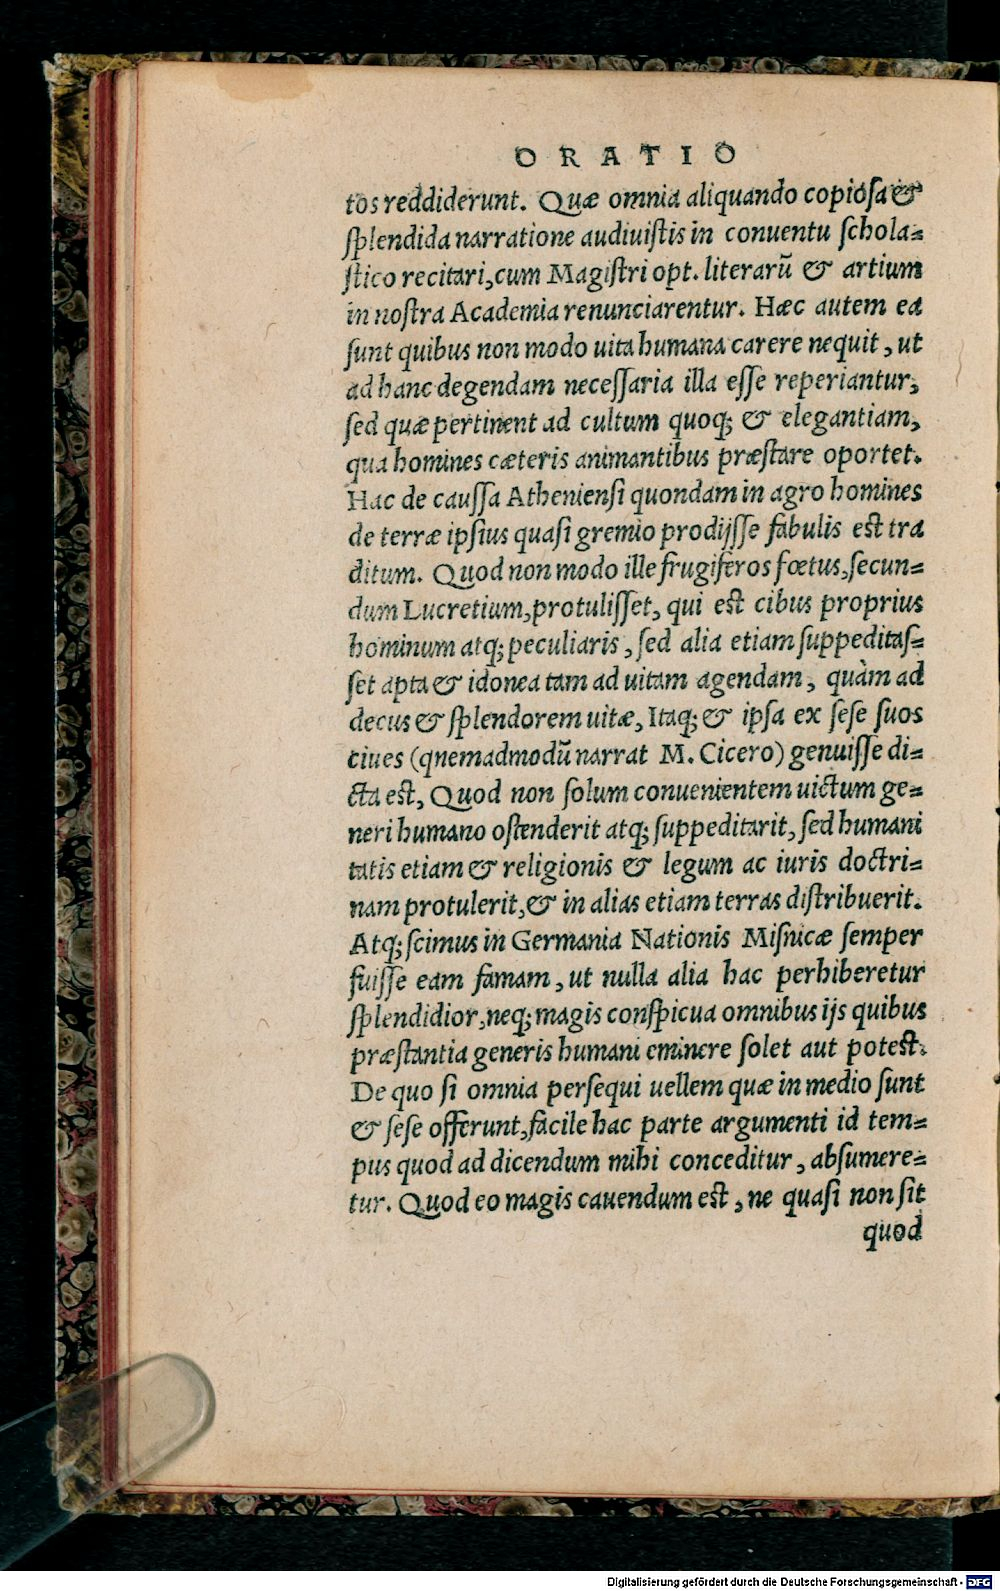 ORATIO
tos reddiderunt. Quæ omnia aliquando copiosa &
splendida narratione audiuistis in conuentu schola=
stico recitari, cum Magistri opt. literarū & artium
in nostra Academia renunciarentur. Hæc autem ea
sunt quibus non modo uita humana carere nequit, ut
ad hanc degendam necessaria illa esse reperiantur,
sed quæ pertinent ad cultum quoq; & elegantiam,
qua homines cæteris animantibus præstare oportet.
Hac de caussa Atheniensi quondam in agro homines
de terræ ipsius quasi gremio prodijsse fabulis est tra
ditum. Quod non modo ille frugiferos fœtus, secun=
dum Lucretium, protulisset, qui est cibus proprius
hominum atq; peculiaris, sed alia etiam suppeditas=
set apta & idonea tam ad uitam agendam, quàm ad
decus & splendorem uitæ, Itaq; & ipsa ex sese suos
ciues (qnemadmodū narrat M. Cicero) genuisse di=
cta est, Quod non solum conuenientem uictum ge=
neri humano ostenderit atq; suppeditarit, sed humani
tatis etiam & religionis & legum ac iuris doctri=
nam protulerit, & in alias etiam terras distribuerit.
Atq; scimus in Germania Nationis Misnicæ semper
fuisse eam famam, ut nulla alia hac perhiberetur
splendidior, neq; magis conspicua omnibus ijs quibus
præstantia generis humani eminere solet aut potest.
De quo si omnia persequi uellem quæ in medio sunt
& sese offerunt, facile hac parte argumenti id tem=
pus quod ad dicendum mihi conceditur, absumere=
tur. Quod eo magis cauendum est, ne quasi non sit
quod
Digitalisierung gefördert durch die Deutsche Forschungsgemeinschaft - DFG